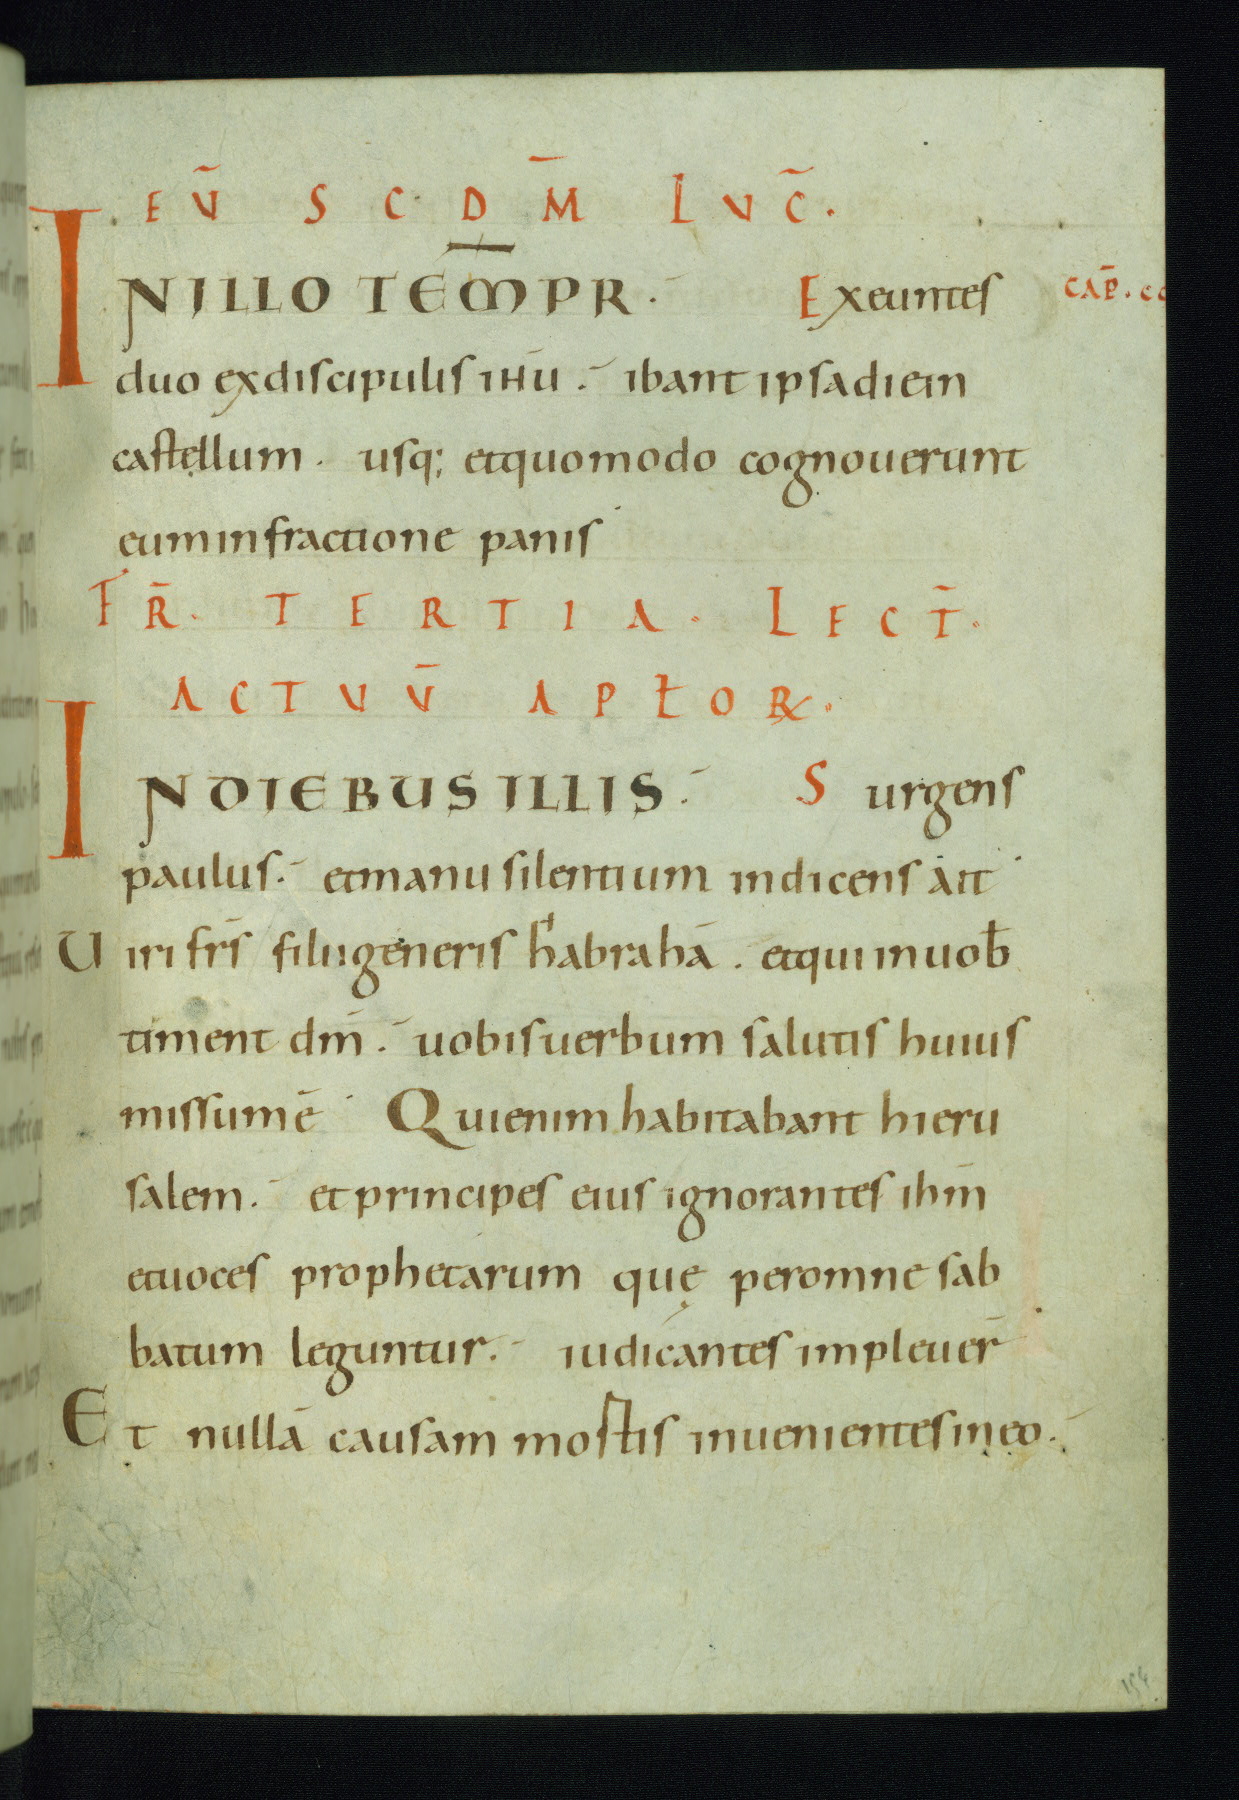 EŪ SCDM̄ LVC̄.
INILLO TEMPR. Exeuntes CAP̄. CC
duo exdiscipulis ihū. ibant ipsadiein
castellum. usq; etquomodo cognouerunt
eum infractione panis
FR̄. TERTIA. LECT̄.
ACTVV̄ APŁOR.
INDIEBUS ILLIS. Surgens
paulus. etmanu silentium indicens ait
Uiri frs̄ filii generis habrahā. etqui inuob̄
timent dm̄. uobis uerbum salutis huius
missumē Qui enim habitabant hieru
salem. et principes eius ignorantes ihm̄
etuoces prophetarum quę peromne sab
batum leguntur. iudicantes impleuer̄
Et nullā causam mostis inuenientes ineo.
154